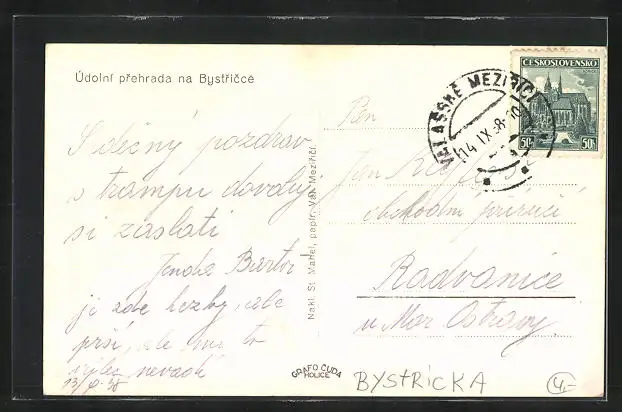 Údolní přehrada na Bystřičce
Srdečný pozdrav
s trampu dovoluji
si zaslati
Jenda Bartoň
je zde hezky, ale
prší, ale mi to
nevadí
13/9 38
Nakl. St. Martel, papír. Val. Meziříčí
GRAFO ČUDA
HOLICE
VALAŠSKÉ MEZIŘÍČÍ
14. IX. 38-10
ČESKOSLOVENSKO
50h 50h
Pan
Jan
obchodní příručí
Radvanice
u Mor Ostravy
BYSTRICKA
4,-